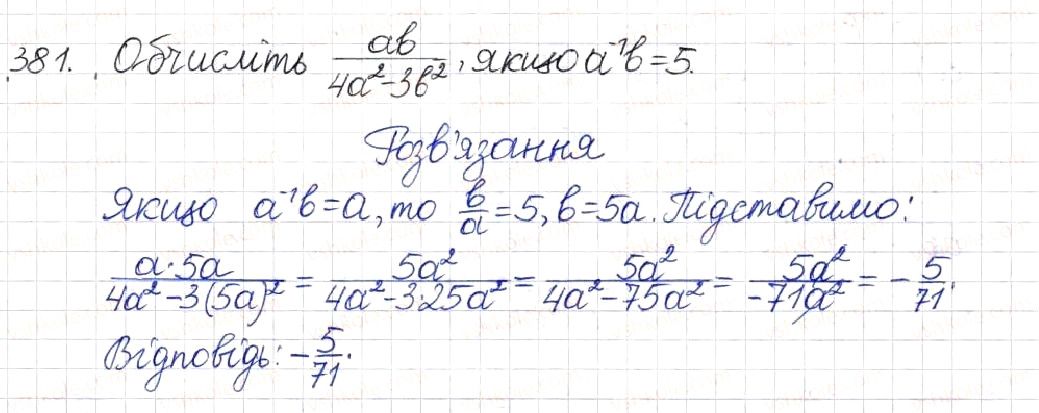 381. Обчисліть ab/(4a²-3b²), якщо a⁻¹b=5.
Розв'язання
Якщо a⁻¹b=a, то b/a=5, b=5a. Підставимо:
(a·5a)/(4a²-3(5a)²) = 5a²/(4a²-3·25a²) = 5a²/(4a²-75a²) = 5a²/(-71a²) = -5/71.
Відповідь: -5/71.